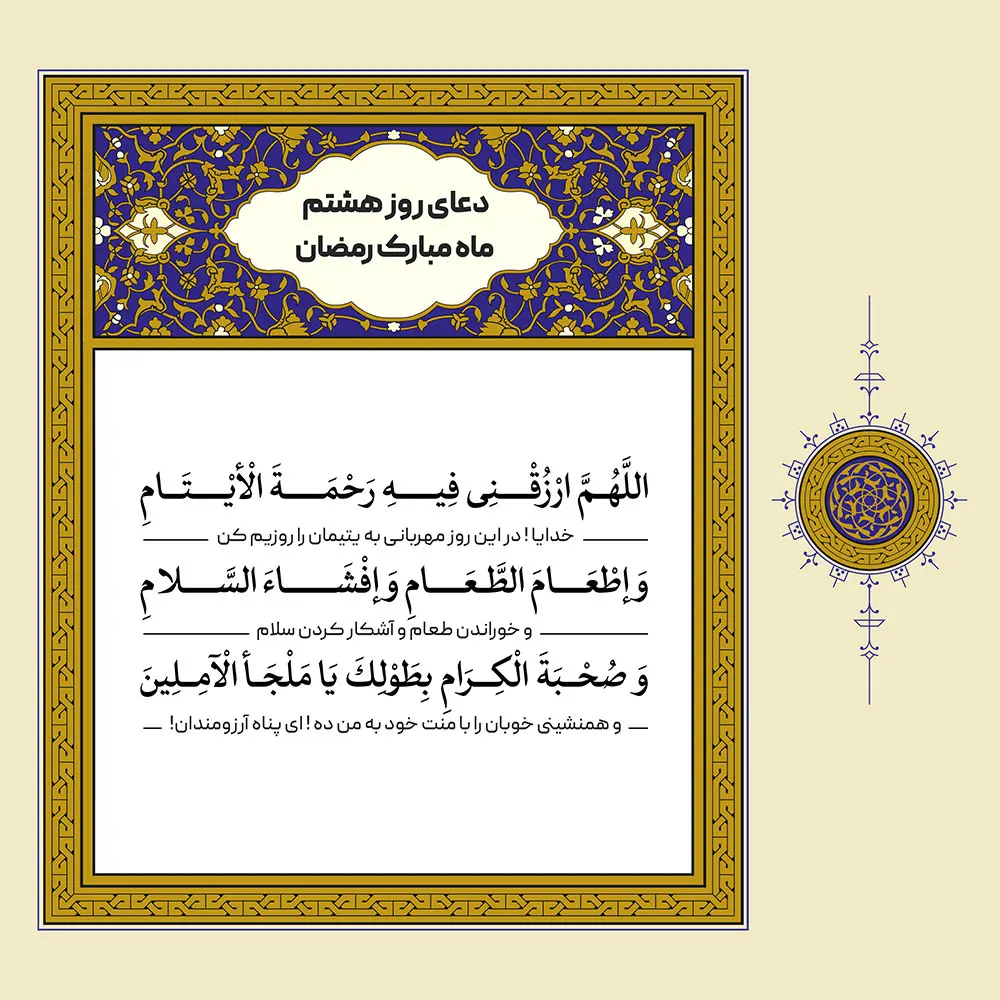 دعای روز هشتم
ماه مبارک رمضان
اللَّهُمَّ ارْزُقْنِی فِیهِ رَحْمَةَ الْأَیْتَامِ
خدایا! در این روز مهربانی به یتیمان را روزیم کن
وَ إِطْعَامَ الطَّعَامِ وَ إِفْشَاءَ السَّلامِ
و خوراندن طعام و آشکار کردن سلام
وَ صُحْبَةَ الْکِرَامِ بِطَوْلِكَ یَا مَلْجَأَ الْآمِلِینَ
و همنشینی خوبان را با منت خود به من ده! ای پناه آرزومندان!